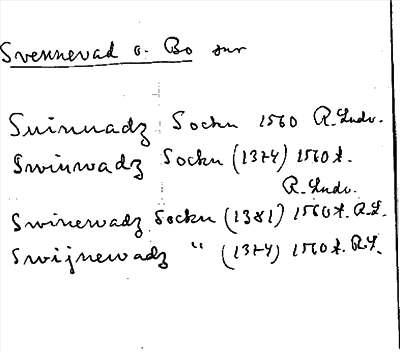 Svennevad o. Bo snr
Suinuadz Sockn 1560 R. Ludv.
Swinwadz Sockn (1374) 1560 t.
R. Ludv.
Swinewadz Sockn (1381) 1560 t. R. L.
Swijnewadz " (1374) 1560 t. R. L.